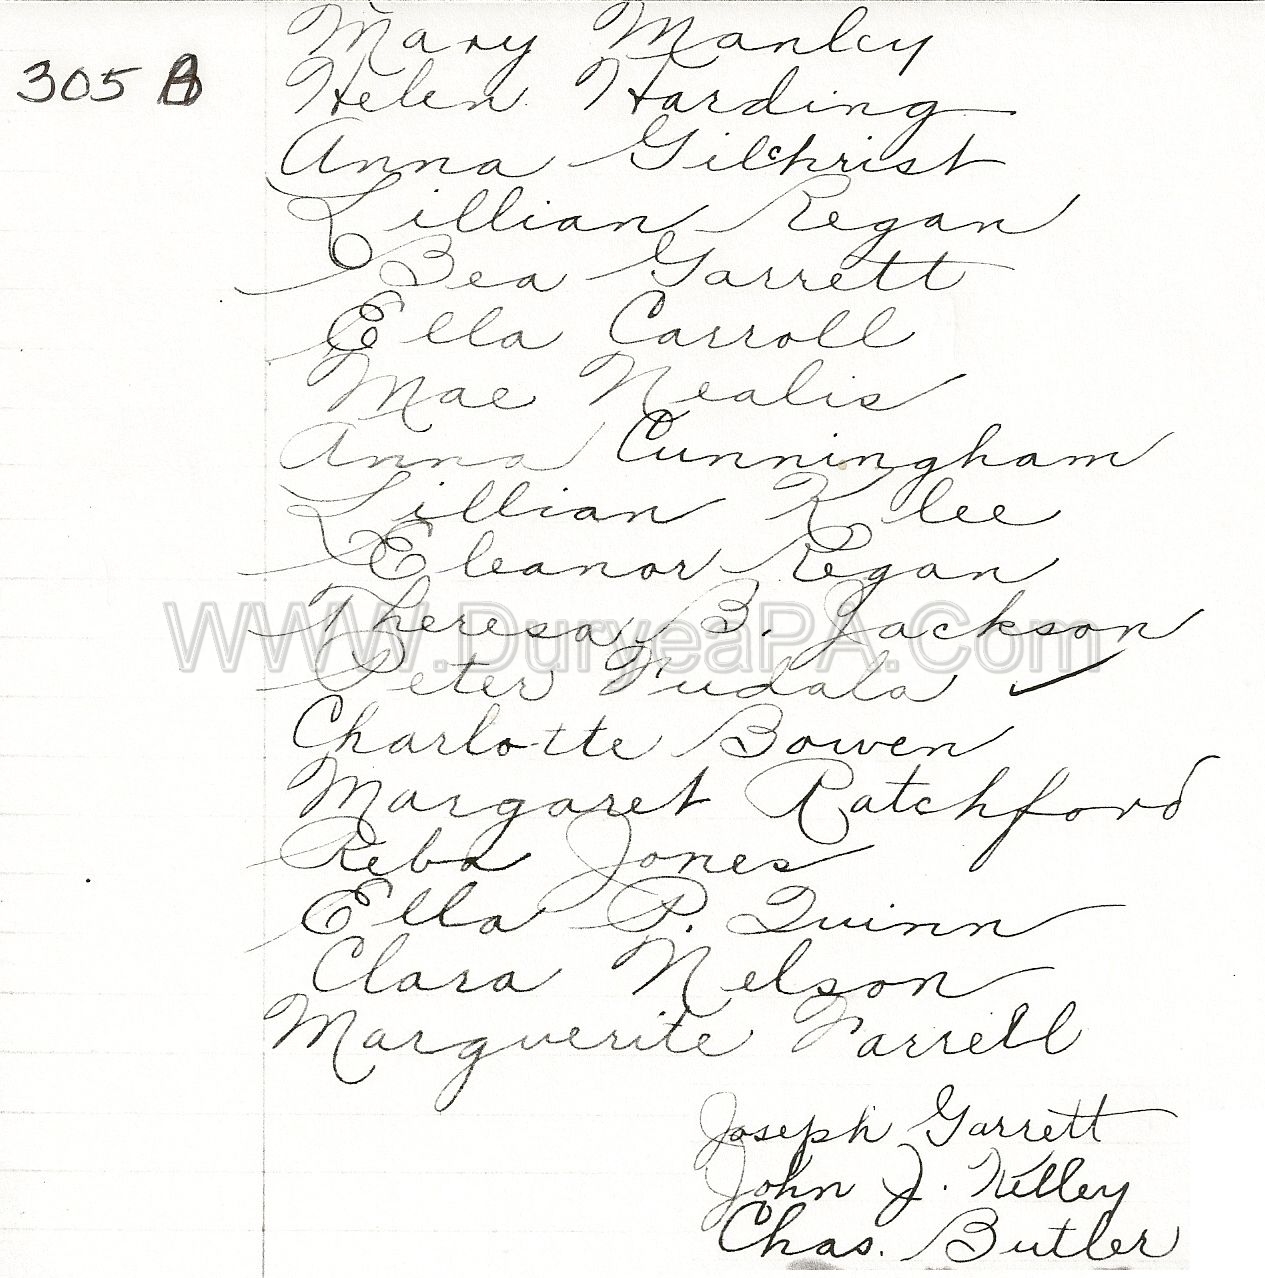 305 B
Mary Manley
Helen Harding
Anna Gilchrist
Lillian Regan
Bea Garrett
Ella Carroll
Mae Nealis
Anna Cunningham
Lillian Klee
Eleanor Regan
Theresa B. Jackson
WWW.DuryeaPA.Com
Peter Fudala ✓
Charlotte Bowen
Margaret Ratchford
Reba Jones
Ella P. Quinn
Clara Nelson
Marguerite Farrell
Joseph Garrett
John J. Kelley
Chas. Butler